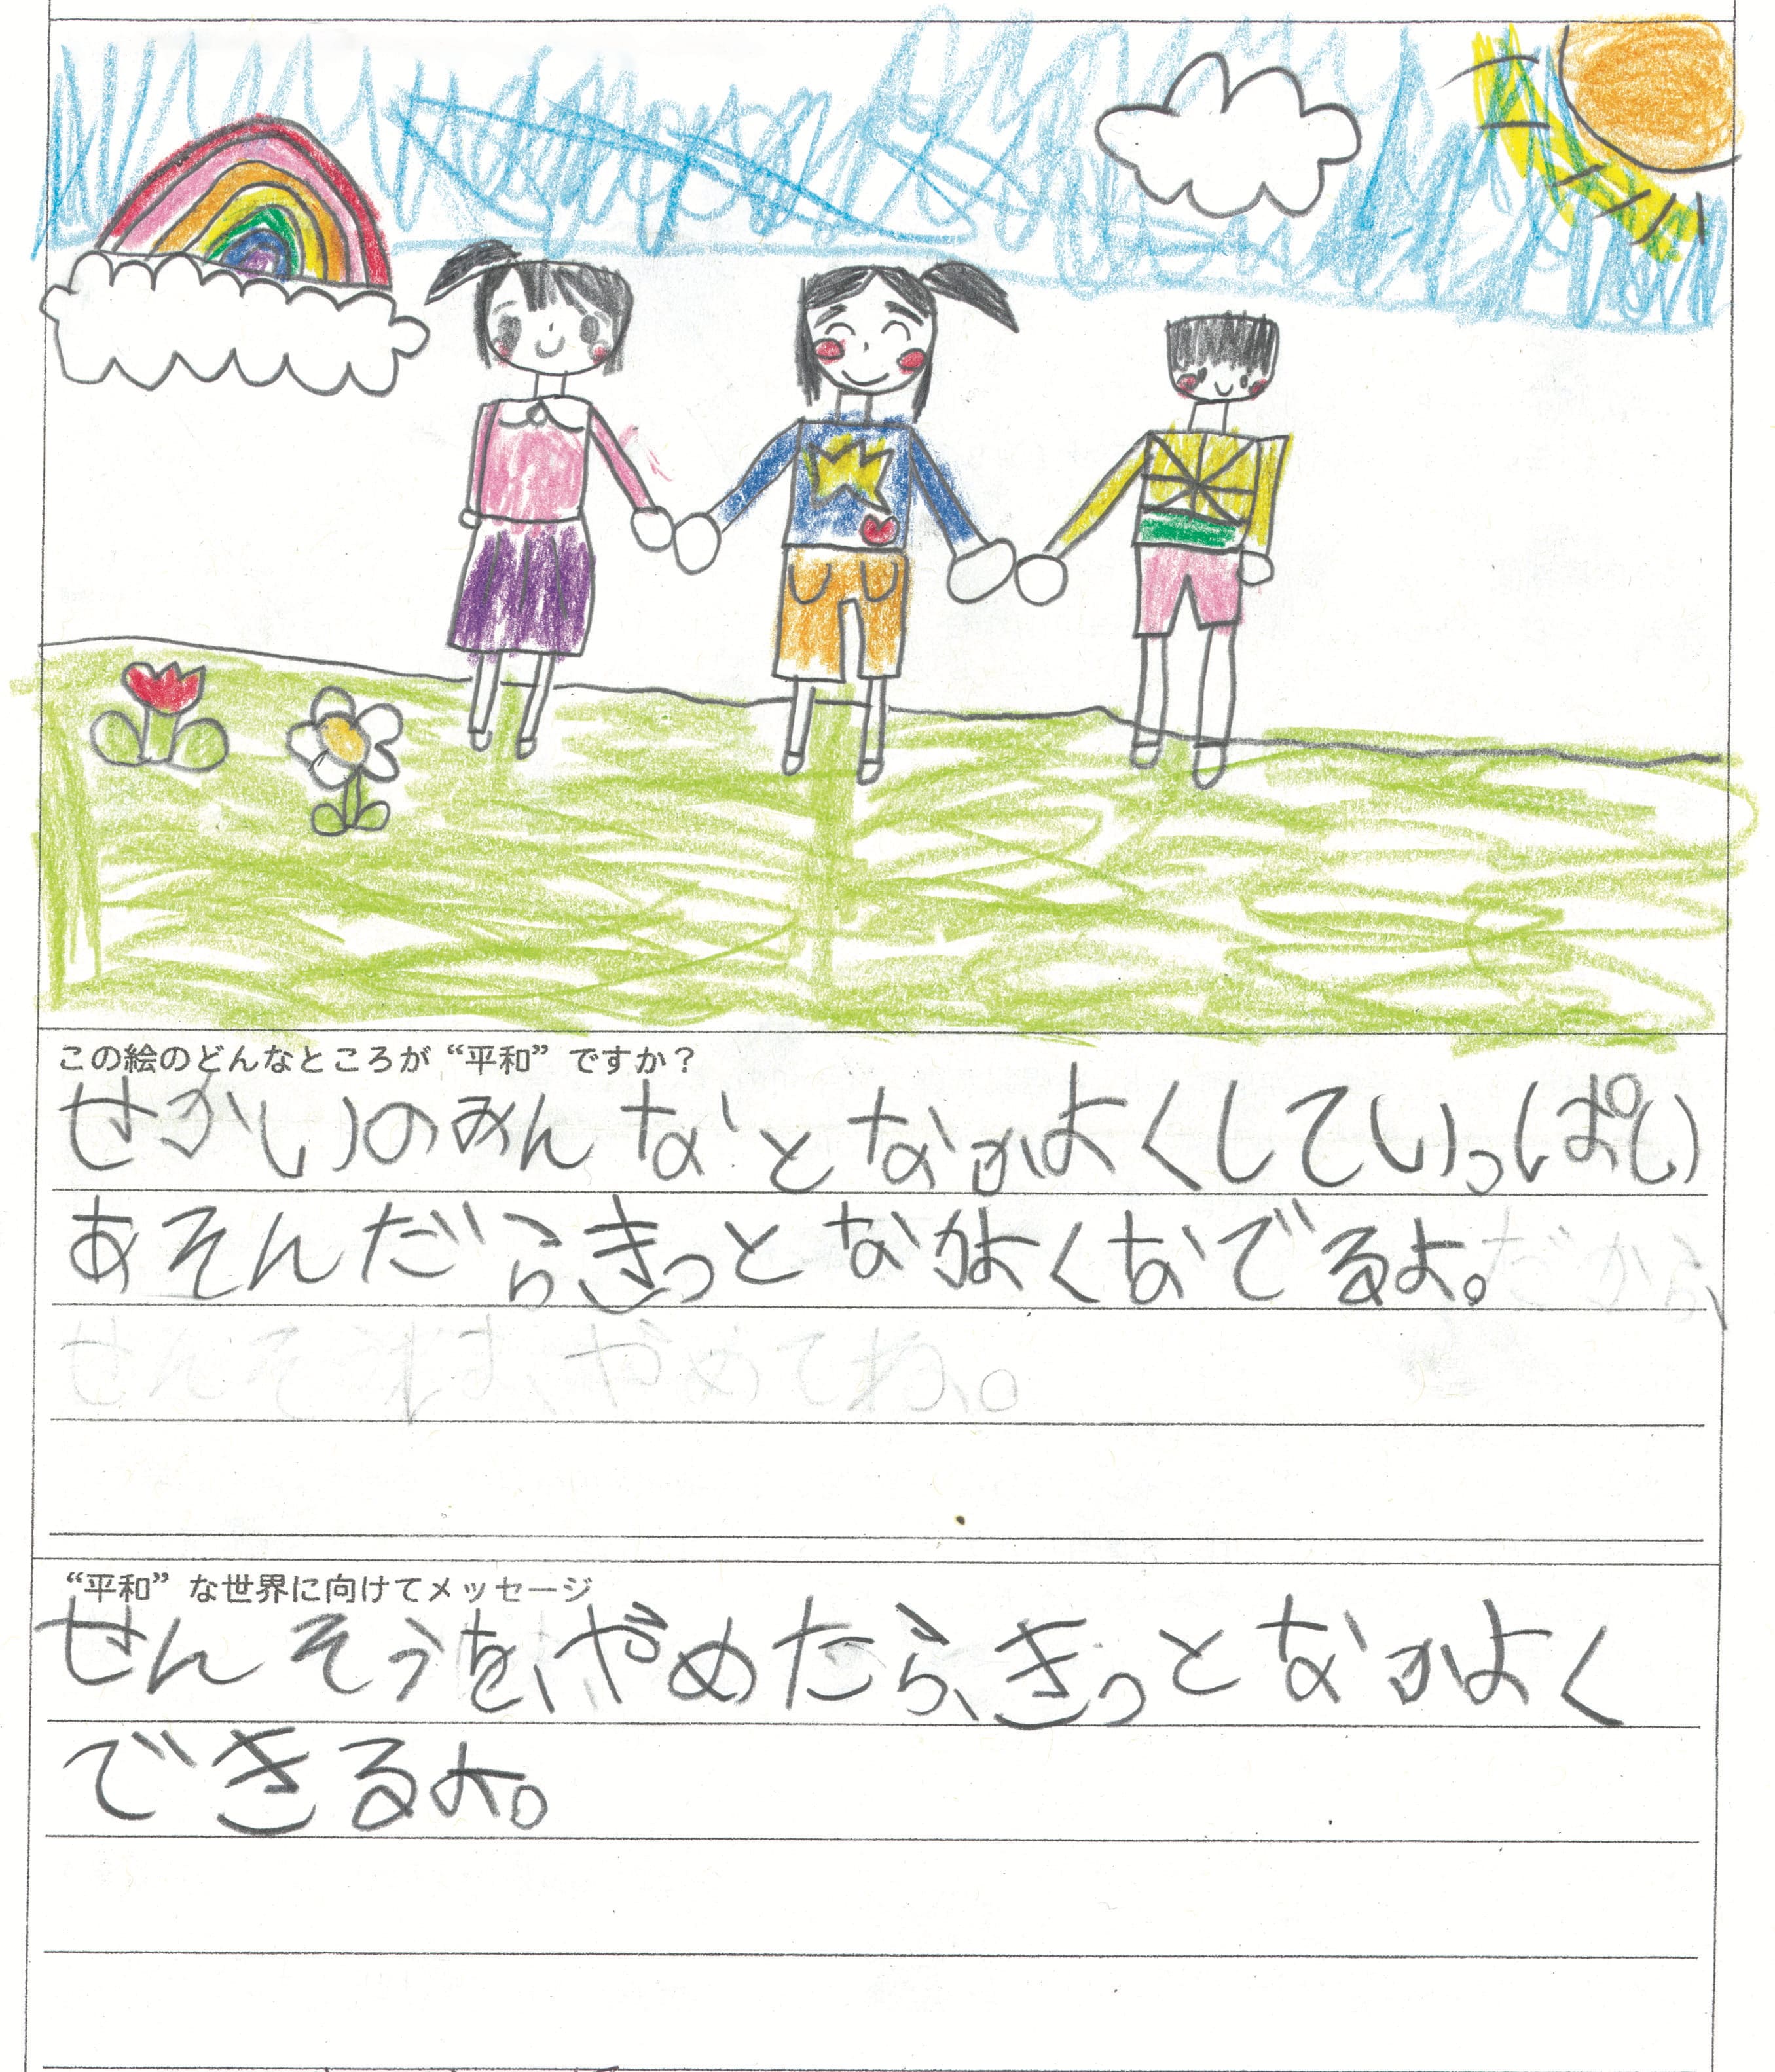 この絵のどんなところが“平和”ですか？
せかいのみんなとなかよくしていっぱい
あそんだらきっとなかよくなでるよ。だから、
せんそうは、やめてね。
“平和”な世界に向けてメッセージ
せんそうを、やめたら、きっとなかよく
できるよ。